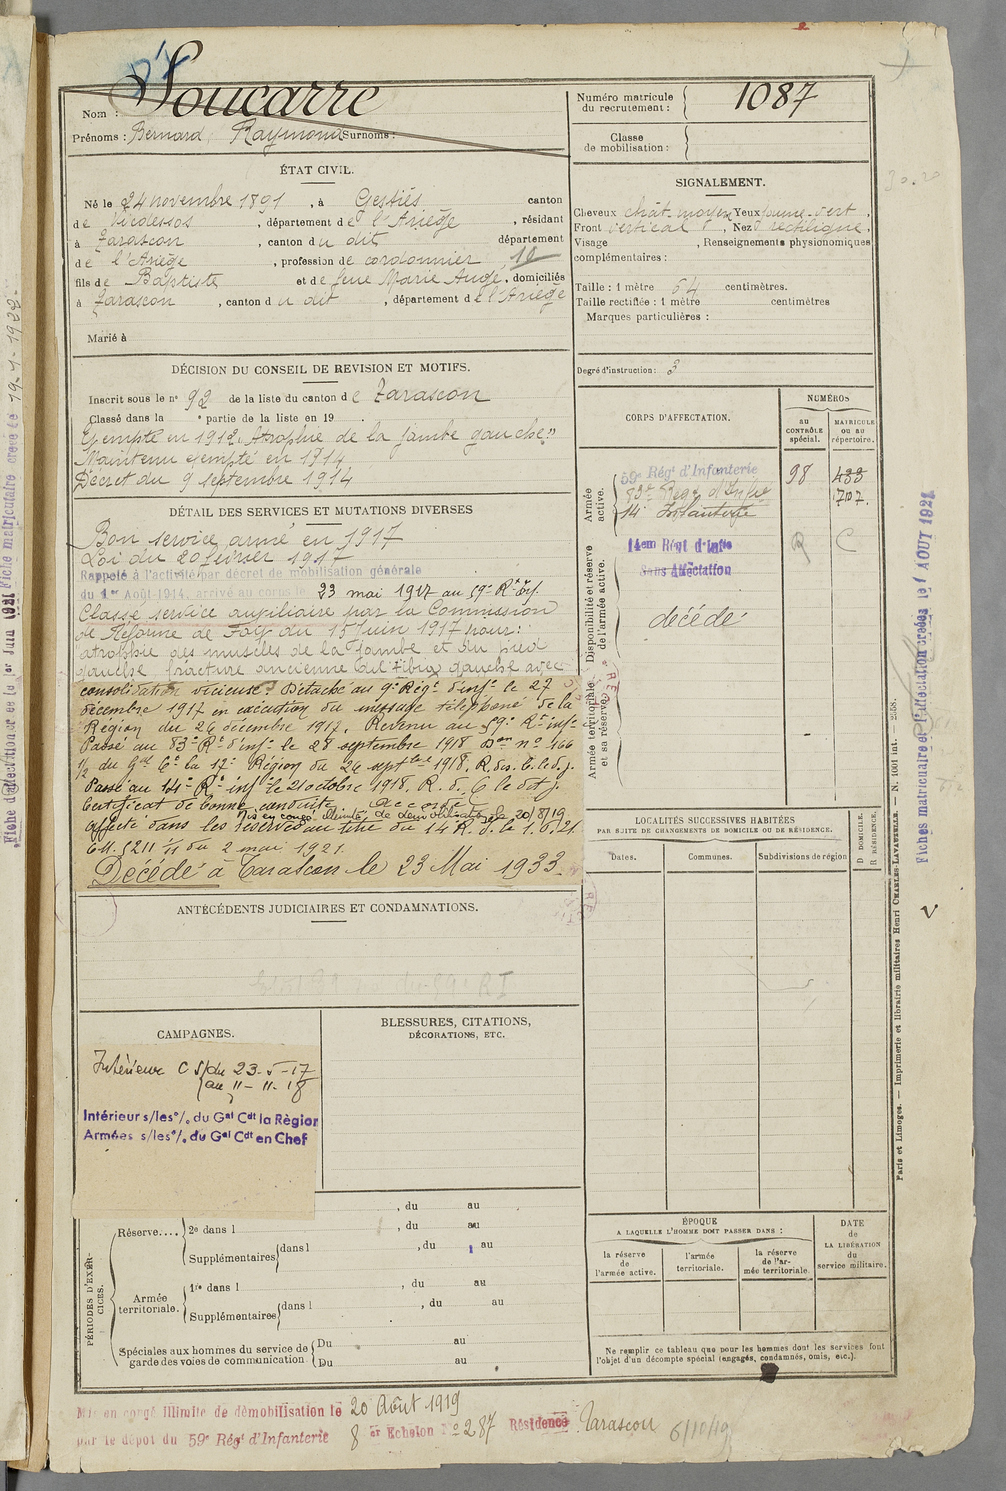 Nom : Soucarre
Prénoms : Bernard Raymond Surnoms :
Numéro matricule du recrutement : 1087
Classe de mobilisation :
ÉTAT CIVIL.
Né le 24 novembre 1891, à Gestiès canton
de Vicdessos, département de l'Ariège, résidant
à Tarascon, canton du dit département
de l'Ariège, profession de cordonnier 12
fils de Baptiste et de feue Marie Augé, domiciliés
à Tarascon, canton du dit, département de l'Ariège
Marié à
SIGNALEMENT.
Cheveux chât. moyen Yeux jaune-vert,
Front vertical, Nez rectiligne,
Visage , Renseignements physionomiques
complémentaires :
Taille : 1 mètre 64 centimètres.
Taille rectifiée : 1 mètre centimètres
Marques particulières :
Degré d'instruction : 3
DÉCISION DU CONSEIL DE REVISION ET MOTIFS.
Inscrit sous le nº 92 de la liste du canton de Tarascon
Classé dans la e partie de la liste en 19
Exempté en 1912. Atrophie de la jambe gauche"
Maintenu exempté en 1914
Décret du 9 septembre 1914
DÉTAIL DES SERVICES ET MUTATIONS DIVERSES
Bon service armé en 1917
Loi du 20 février 1917
Rappelé à l'activité par décret de mobilisation générale
du 1er Août 1914, arrivé au corps le 23 mai 1917 au 59e Rt inf.
Classé service auxiliaire par la Commission
de Réforme de Foix du 15 Juin 1917 pour :
atrophie des muscles de la jambe et du pied
gauche fracture ancienne du tibia gauche avec
consolidation vicieuse. Détaché au 9e Régt d'inf. le 27
décembre 1917 en exécution du message téléphoné de la
Région du 26 décembre 1917. Revenu au 59e Rt inf.
Passé au 83e Rt d'inf. le 28 septembre 1918 Don nº 466
1/2 du Gal Ct la 17e Région du 24 septbre 1918. R. des. C. le d. j.
Passé au 14e Rt inf. le 21 octobre 1918. R. d. C le dt j.
Certificat de bonne conduite accordé
Mis en congé illimité de démobilisation le 20/8/19
Affecté dans les réserves au titre du 14 R. d. le 1.6.21
C.M. 5211 1/11 du 2 mai 1921.
Décédé à Tarascon le 23 Mai 1933.
CORPS D'AFFECTATION.
NUMÉROS
au CONTRÔLE spécial.
MATRICULE ou au répertoire.
Armée active.
59e Régt d'Infanterie 98 433
83e Régt d'Infie 707
14e Infanterie
Disponibilité et réserve de l'armée active.
14em Régt d'Infie R C
Sans Affectation
décédé
Armée territoriale et sa réserve.
LOCALITÉS SUCCESSIVES HABITÉES
PAR SUITE DE CHANGEMENTS DE DOMICILE OU DE RÉSIDENCE.
Dates.
Communes.
Subdivisions de région
D DOMICILE.
R RÉSIDENCE.
ANTÉCÉDENTS JUDICIAIRES ET CONDAMNATIONS.
CAMPAGNES.
Intérieur C S/ du 23-5-17
au 11-11-18
Intérieur s/les º/. du Gal Cdt la Règion
Armées s/les º/. du Gal Cdt en Chef
BLESSURES, CITATIONS,
DÉCORATIONS, ETC.
PÉRIODES D'EXERCICES.
, du au
Réserve.... 2e dans l , du au
Supplémentaires dans l , du au
Armée territoriale. 1re dans l , du au
Supplémentaires dans l , du au
Spéciales aux hommes du service de garde des voies de communication.
Du au
Du au
ÉPOQUE
A LAQUELLE L'HOMME DOIT PASSER DANS :
la réserve de l'armée active.
l'armée territoriale.
la réserve de l'armée territoriale.
DATE de LA LIBÉRATION du service militaire.
Ne remplir ce tableau que pour les hommes dont les services font
l'objet d'un décompte spécial (engagés, condamnés, omis, etc.).
Mis en congé illimité de démobilisation le 20 Août 1919
par le dépôt du 59e Régt d'Infanterie 8 er Echelon Nº 287 Résidence Tarascon 6/10/19
Paris et Limoges. — Imprimerie et librairie militaires Henri CHARLES-LAVAUZELLE. — N. 1001 int.
Fiches matriculaire et d'affectation créées le 1 AOUT 1921
V